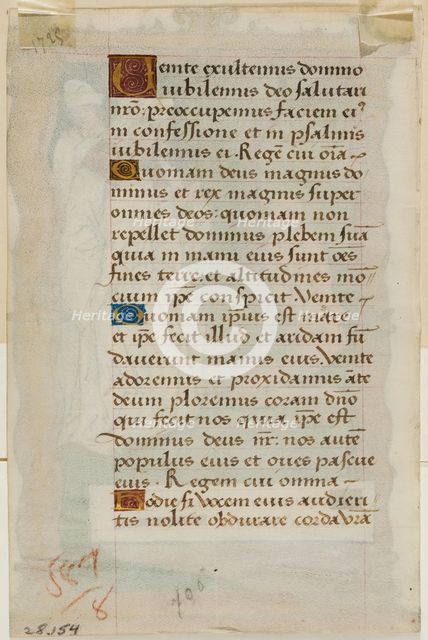 1725
Venite exultemus domino
iubilemus deo salutari
nr̃o: preoccupemus faciem ei⁹
in confessione et in psalmis
iubilemus ei. Regẽ cui oĩa
Quoniam deus magnus do/
minus et rex magnus super
omnes deos: quoniam non
repellet dominus plebem suã
quia in manu eius sunt oẽs
fines terre: et altitudines mõ/
cium ip̃e conspicit Venite
Quoniam ip̃ius est mare
et ip̃e fecit illud et aridam fũ/
dauerunt manus eius. Venite
adoremus et procidamus ãte
deum ploremus coram dño
qui fecit nos quia ip̃e est
dominus deus nr̃: nos autẽ
populus eius et oues pascue
eius. Regem cui omnia
Hodie si vocem eius audieri/
tis nolite obdurare corda vr̃a
700
28.154
Heritage
Heritage
Heritage
Heritage
Heritage